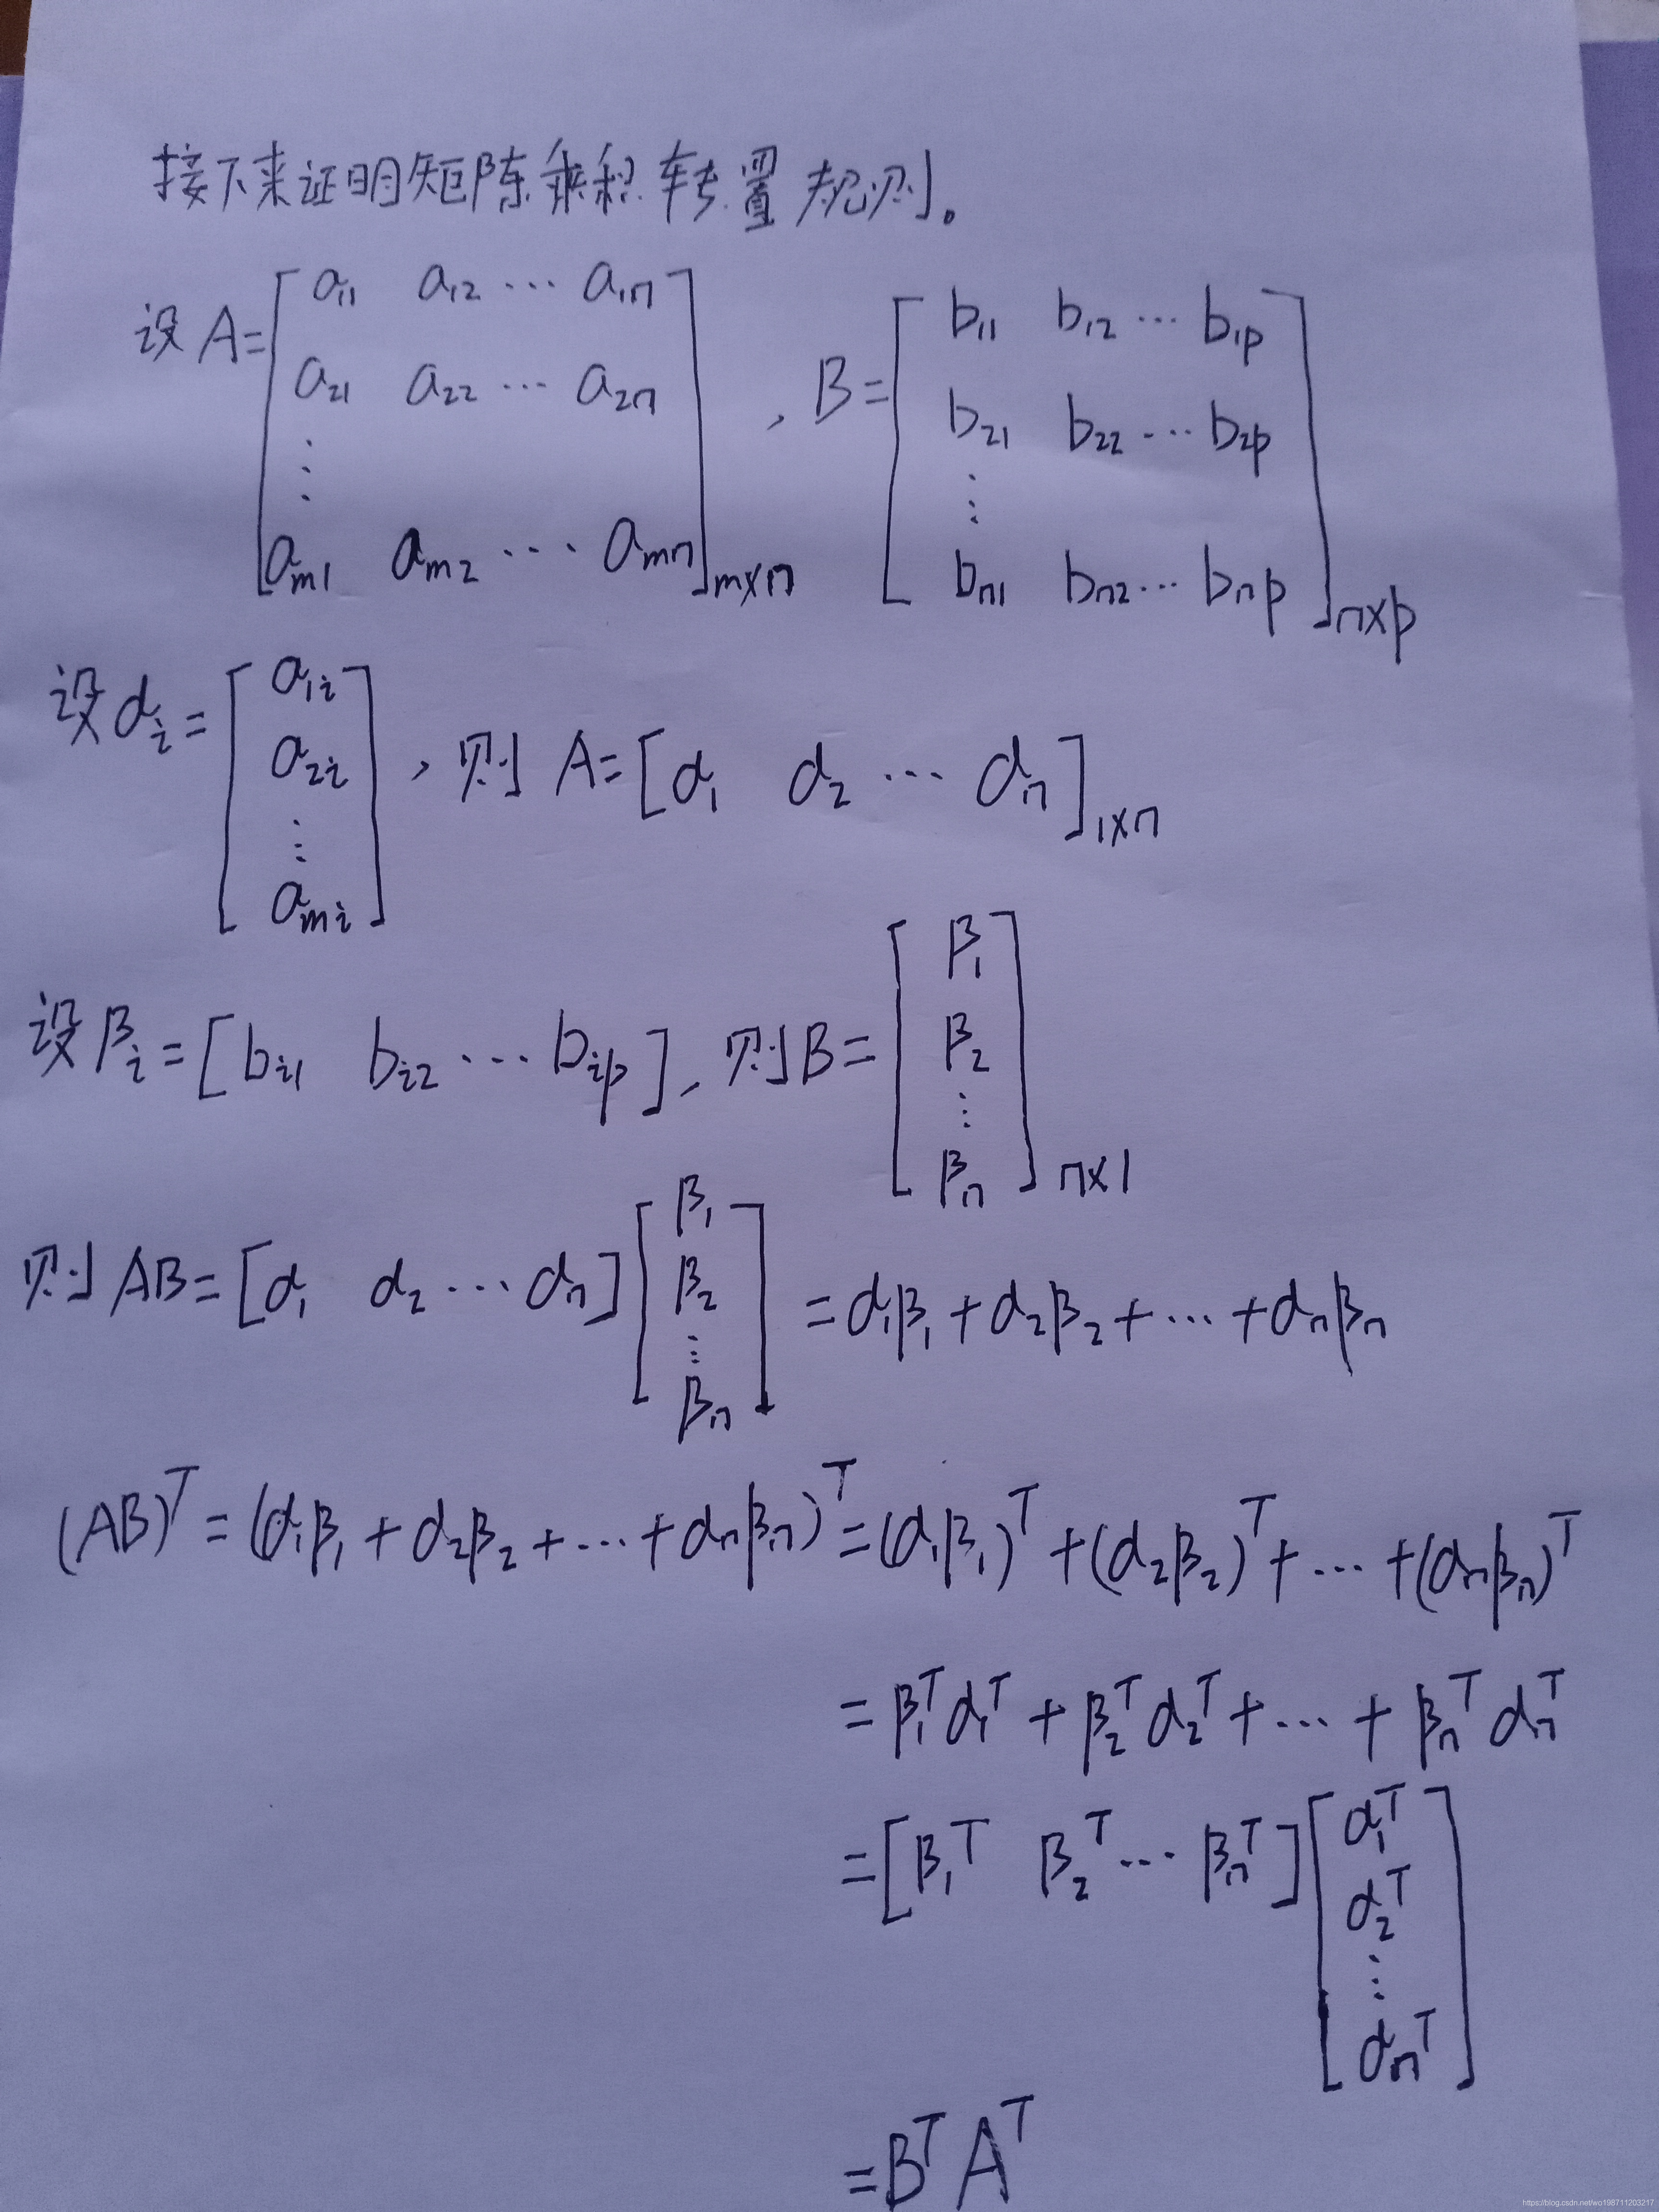 接下来证明矩阵乘积转置规则。
设 A = [ a₁₁ a₁₂ ⋯ a₁ₙ
a₂₁ a₂₂ ⋯ a₂ₙ
⋮
aₘ₁ aₘ₂ ⋯ aₘₙ ]ₘₓₙ , B = [ b₁₁ b₁₂ ⋯ b₁ₚ
b₂₁ b₂₂ ⋯ b₂ₚ
⋮
bₙ₁ bₙ₂ ⋯ bₙₚ ]ₙₓₚ
设 αᵢ = [ a₁ᵢ
a₂ᵢ
⋮
aₘᵢ ] , 则 A = [ α₁ α₂ ⋯ αₙ ]₁ₓₙ
设 βᵢ = [ bᵢ₁ bᵢ₂ ⋯ bᵢₚ ] , 则 B = [ β₁
β₂
⋮
βₙ ]ₙₓ₁
则 AB = [ α₁ α₂ ⋯ αₙ ] [ β₁
β₂
⋮
βₙ ] = α₁β₁ + α₂β₂ + ⋯ + αₙβₙ
(AB)ᵀ = (α₁β₁ + α₂β₂ + ⋯ + αₙβₙ)ᵀ = (α₁β₁)ᵀ + (α₂β₂)ᵀ + ⋯ + (αₙβₙ)ᵀ
= β₁ᵀα₁ᵀ + β₂ᵀα₂ᵀ + ⋯ + βₙᵀαₙᵀ
= [ β₁ᵀ β₂ᵀ ⋯ βₙᵀ ] [ α₁ᵀ
α₂ᵀ
⋮
αₙᵀ ]
= BᵀAᵀ
https://blog.csdn.net/wo198711203217